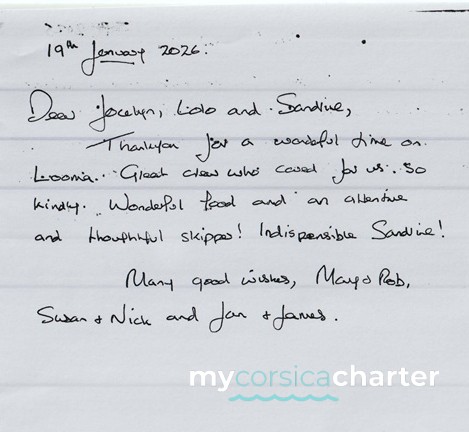 19th January 2026.
Dear Jocelyn, Lolo and Sandrine,
Thankyou for a wonderful time on
Loonia. Great crew who cared for us so
kindly. Wonderful food and an attentive
and thoughtful skipper! Indispensible Sandrine!
Many good wishes, Mary & Rob,
Susan & Nick and Jan & James.
mycorsicacharter